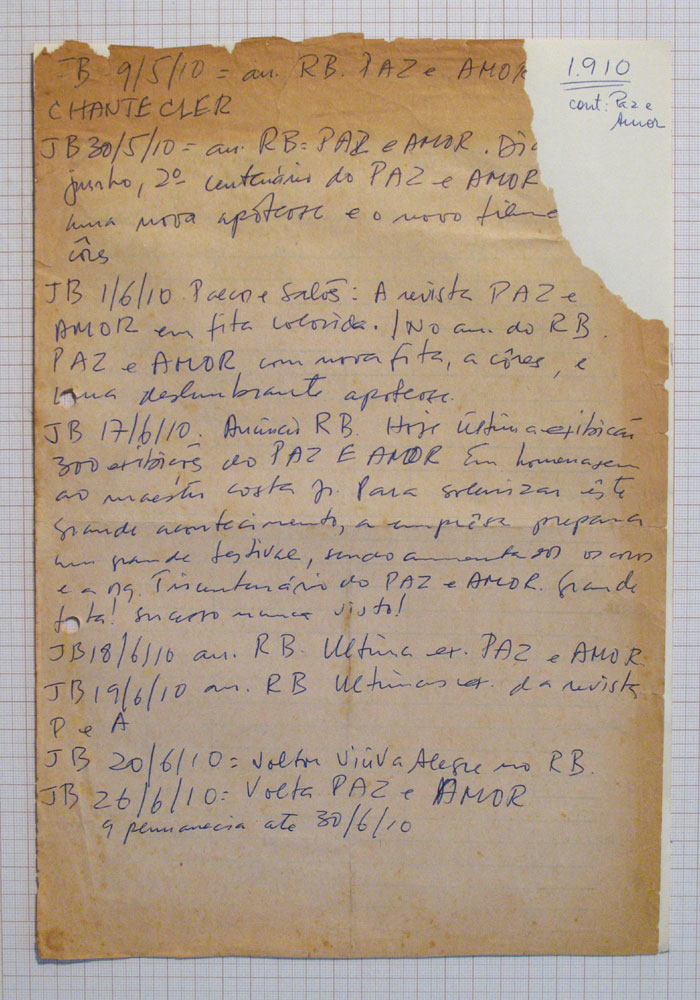 JB 9/5/10 = an. RB. PAZ e AMOR
CHANTECLER
1.910
cont: Paz e
Amor
JB 30/5/10 = an. RB = PAZ e AMOR. Di
junho, 2º centenário do PAZ e AMOR
uma nova apoteose e o novo filme
côres
JB 1/6/10 Palcos e Salões: A revista PAZ e
AMOR em fita colorida. / No an. do RB.
PAZ e AMOR com nova fita, a côres, e
uma deslumbrante apoteose.
JB 17/6/10. Anúncio RB. Hoje última exibição
300 exibições do PAZ E AMOR Em homenagem
ao maestro Costa Jr. Para solenizar êste
grande acontecimento, a emprêsa prepara
um grande festival, sendo aumentados os coros
e a orq. Tricentenário do PAZ e AMOR. Grande
festa! Sucesso nunca visto!
JB 18/6/10 an. RB. Ultima ex. PAZ e AMOR
JB 19/6/10 an. RB Ultimas ex. da revista
P e A
JB 20/6/10 = Voltou Viúva Alegre no RB.
JB 26/6/10 = Volta PAZ e AMOR
q permanecia até 30/6/10